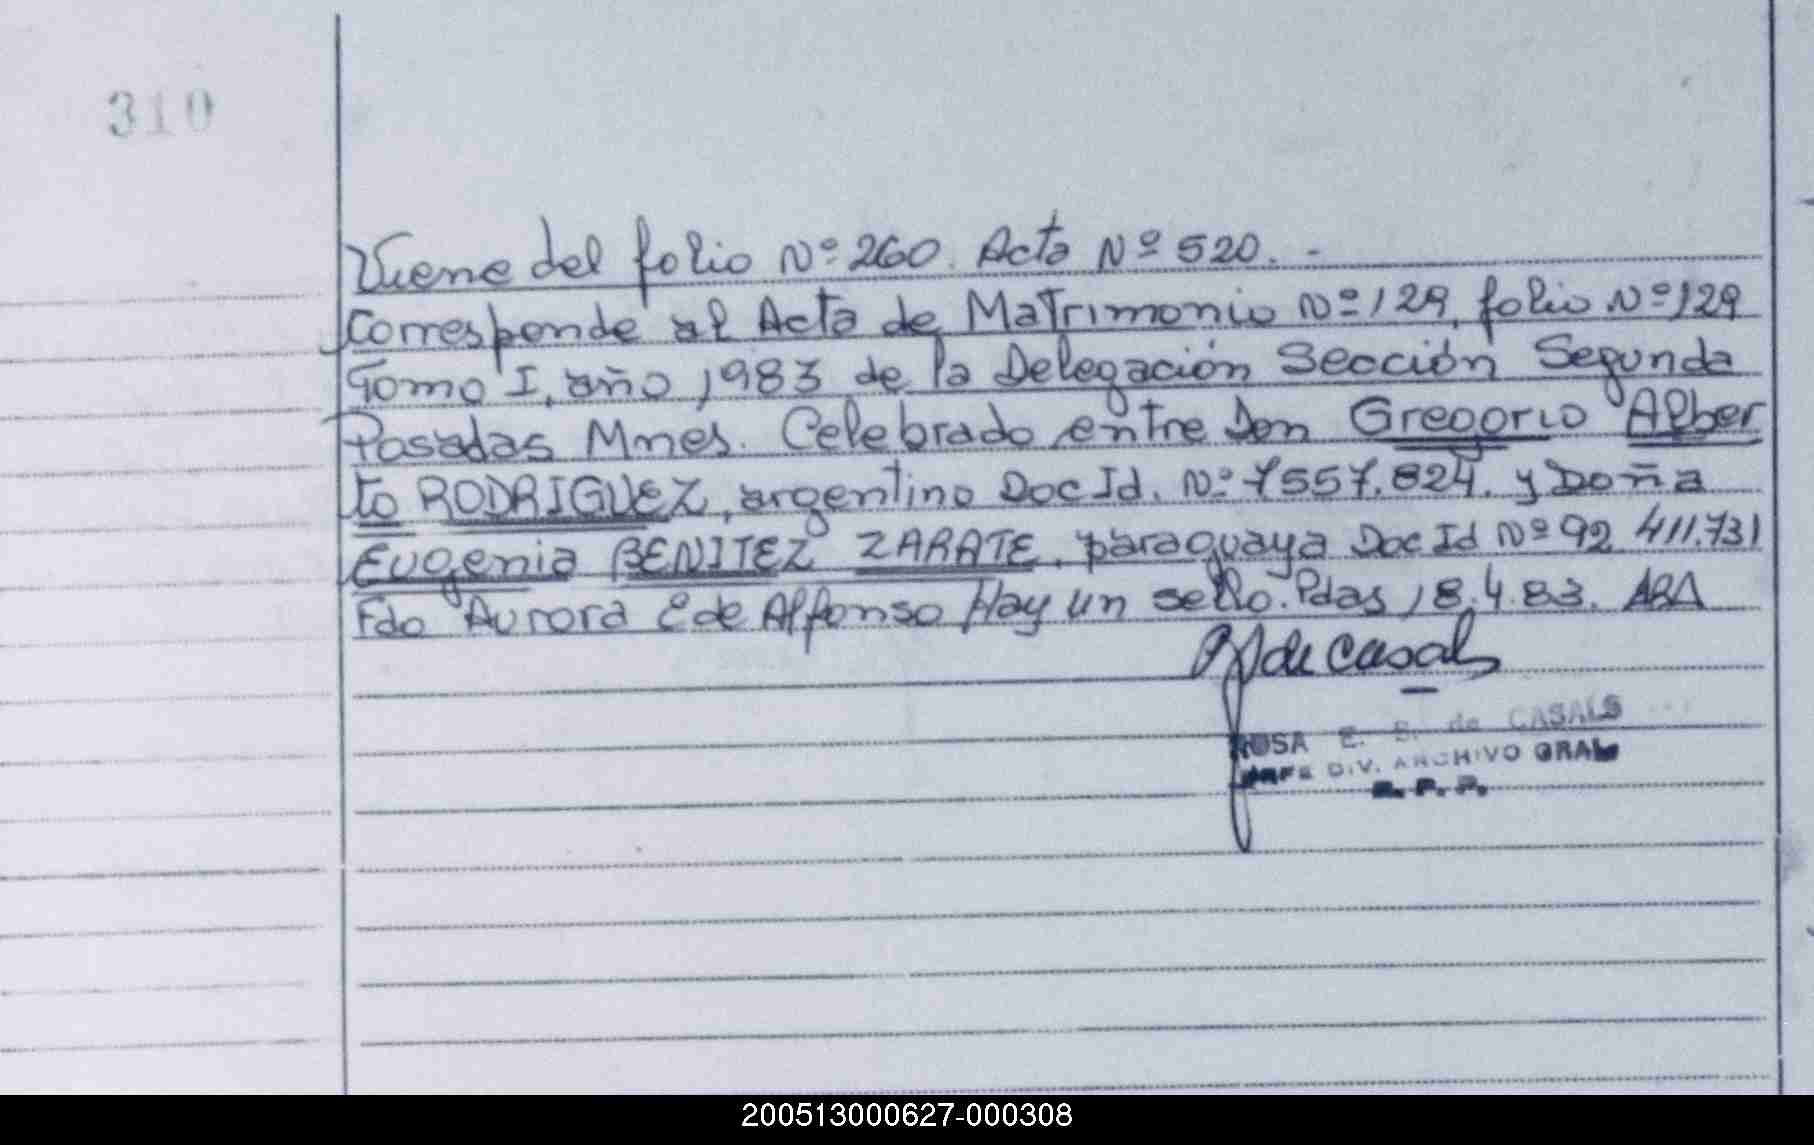 310
Viene del folio Nº 260. Acta Nº 520. -
Corresponde al Acta de Matrimonio Nº 129, folio Nº 129
Tomo I, año 1983 de la Delegación Sección Segunda
Posadas Mnes. Celebrado entre Don Gregorio Alber
to RODRIGUEZ, argentino Doc Id. Nº 7557.824. y Doña
Eugenia BENITEZ ZARATE. paraguaya Doc Id Nº 92 411.731
Fdo Aurora E de Alfonso Hay un sello. Pdas, 18.4.83. ABA
de Casals
ROSA E. S. de CASALS
JEFE DIV. ARCHIVO GRAL
R. P. P.
200513000627-000308